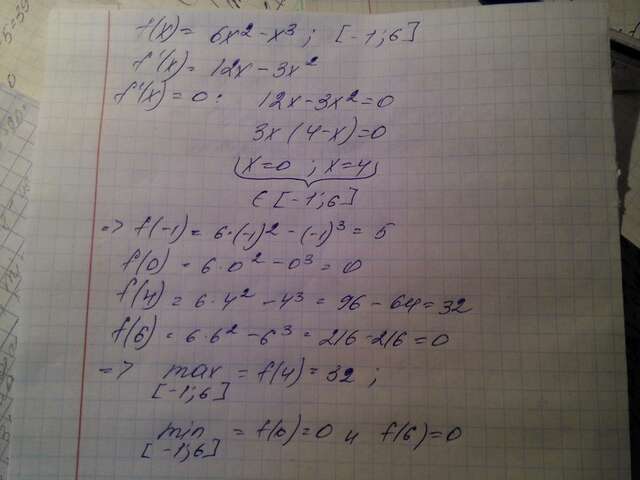 f(x) = 6x² - x³ ; [-1;6]
f'(x) = 12x - 3x²
f'(x) = 0 : 12x - 3x² = 0
3x (4-x) = 0
x=0 ; x=4
∈ [-1;6]
=> f(-1) = 6·(-1)² - (-1)³ = 5
f(0) = 6·0² - 0³ = 0
f(4) = 6·4² - 4³ = 96 - 64 = 32
f(6) = 6·6² - 6³ = 216 - 216 = 0
=> max = f(4) = 32 ;
[-1;6]
min = f(0) = 0 и f(6) = 0
[-1;6]